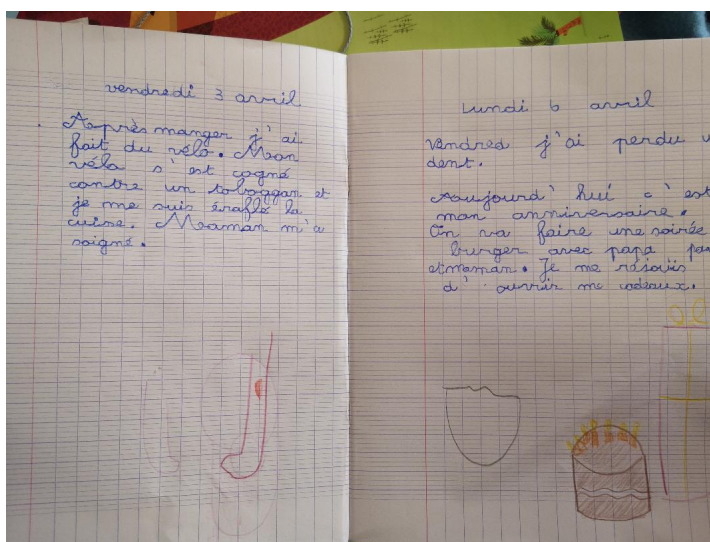 vendredi 3 avril
Après manger j'ai
fait du vélo. Mon
vélo s'est cogné
contre un toboggan et
je me suis éraflé la
cuisse. Maman m'a
soigné.
Lundi 6 avril
Vendred j'ai perdu u
dent.
Aujourd'hui c'est
mon anniversaire.
On va faire une soirée
burger avec papa
et maman. Je me réjouis
d'ouvrir me cadeaux.